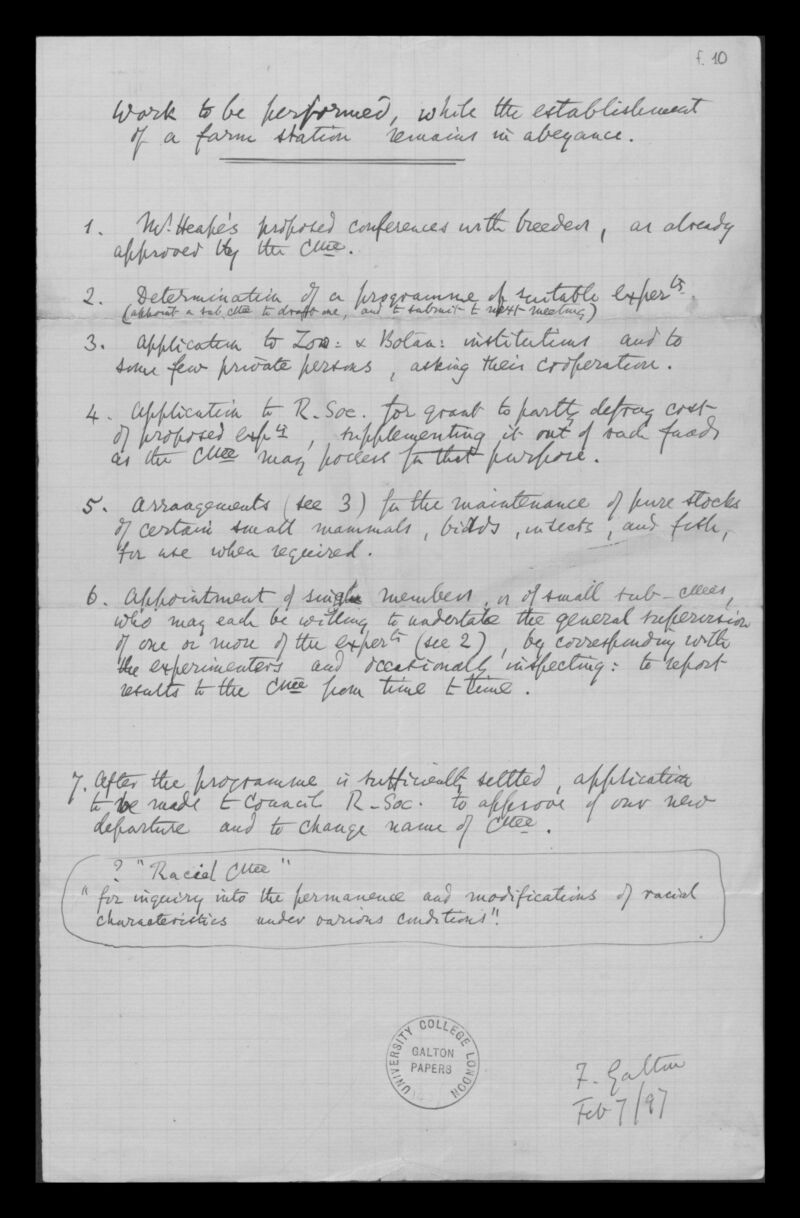 f. 10
Work to be performed, while the establishment
of a farm station remains in abeyance.
1. Mr. Heape's proposed conferences with breeders, as already
approved by the Cttee.
2. Determination of a programme of suitable experts.
(appoint a sub. Cttee to draft one, and to submit to next meeting)
3. Application to Zoo: & Botan: institutions and to
some few private persons, asking their cooperation.
4. Application to R. Soc. for grant to partly defray cost
of proposed expts, supplementing it out of such funds
as the Cttee may possess for that purpose.
5. Arrangements (see 3) for the maintenance of pure stocks
of certain small mammals, birds, insects, and fish,
for use when required.
6. Appointment of single members, or of small sub-Cttees,
who may each be willing to undertake the general supervision
of one or more of the experts (see 2), by corresponding with
the experimenters and occasionally inspecting: to report
results to the Cttee from time to time.
7. After the programme is sufficiently settled, application
to be made to Council R. Soc. to approve of our new
departure and to change name of Cttee.
? "Racial Cttee"
"for inquiry into the permanence and modifications of racial
characteristics under various conditions".
UNIVERSITY COLLEGE LONDON
GALTON
PAPERS
F. Galton
Feb 7/97